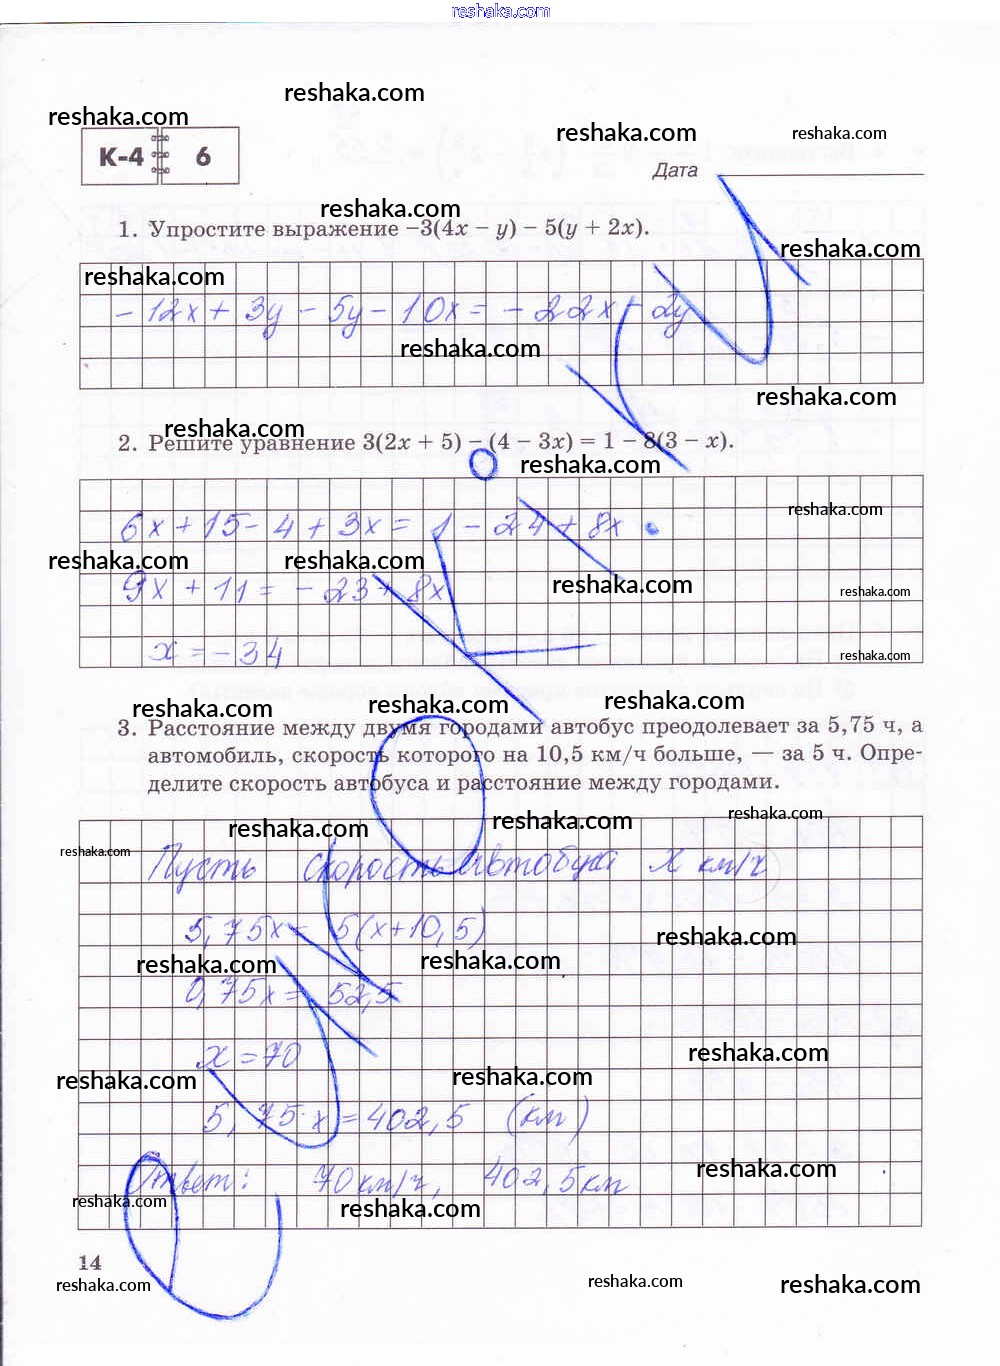 reshaka.com
reshaka.com
reshaka.com
reshaka.com
reshaka.com
К-4 6
Дата
reshaka.com
1. Упростите выражение −3(4x − y) − 5(y + 2x).
reshaka.com
reshaka.com
- 12x + 3y - 5y - 10x = - 22x - 2y
reshaka.com
reshaka.com
reshaka.com
2. Решите уравнение 3(2x + 5) − (4 − 3x) = 1 − 8(3 − x).
reshaka.com
reshaka.com
6x + 15 - 4 + 3x = 1 - 24 + 8x
reshaka.com
reshaka.com
reshaka.com
reshaka.com
9x + 11 = - 23 + 8x
x = - 34
reshaka.com
reshaka.com
reshaka.com
reshaka.com
3. Расстояние между двумя городами автобус преодолевает за 5,75 ч, а
автомобиль, скорость которого на 10,5 км/ч больше, — за 5 ч. Опре-
делите скорость автобуса и расстояние между городами.
reshaka.com
reshaka.com
reshaka.com
reshaka.com
Пусть скорость автобуса x км/ч
5,75x = 5(x+10,5)
reshaka.com
reshaka.com
reshaka.com
0,75x = 52,5
x = 70
reshaka.com
reshaka.com
reshaka.com
5,75·x = 402,5 (км)
reshaka.com
Ответ: 70 км/ч, 402,5 км
reshaka.com
reshaka.com
14
reshaka.com
reshaka.com
reshaka.com